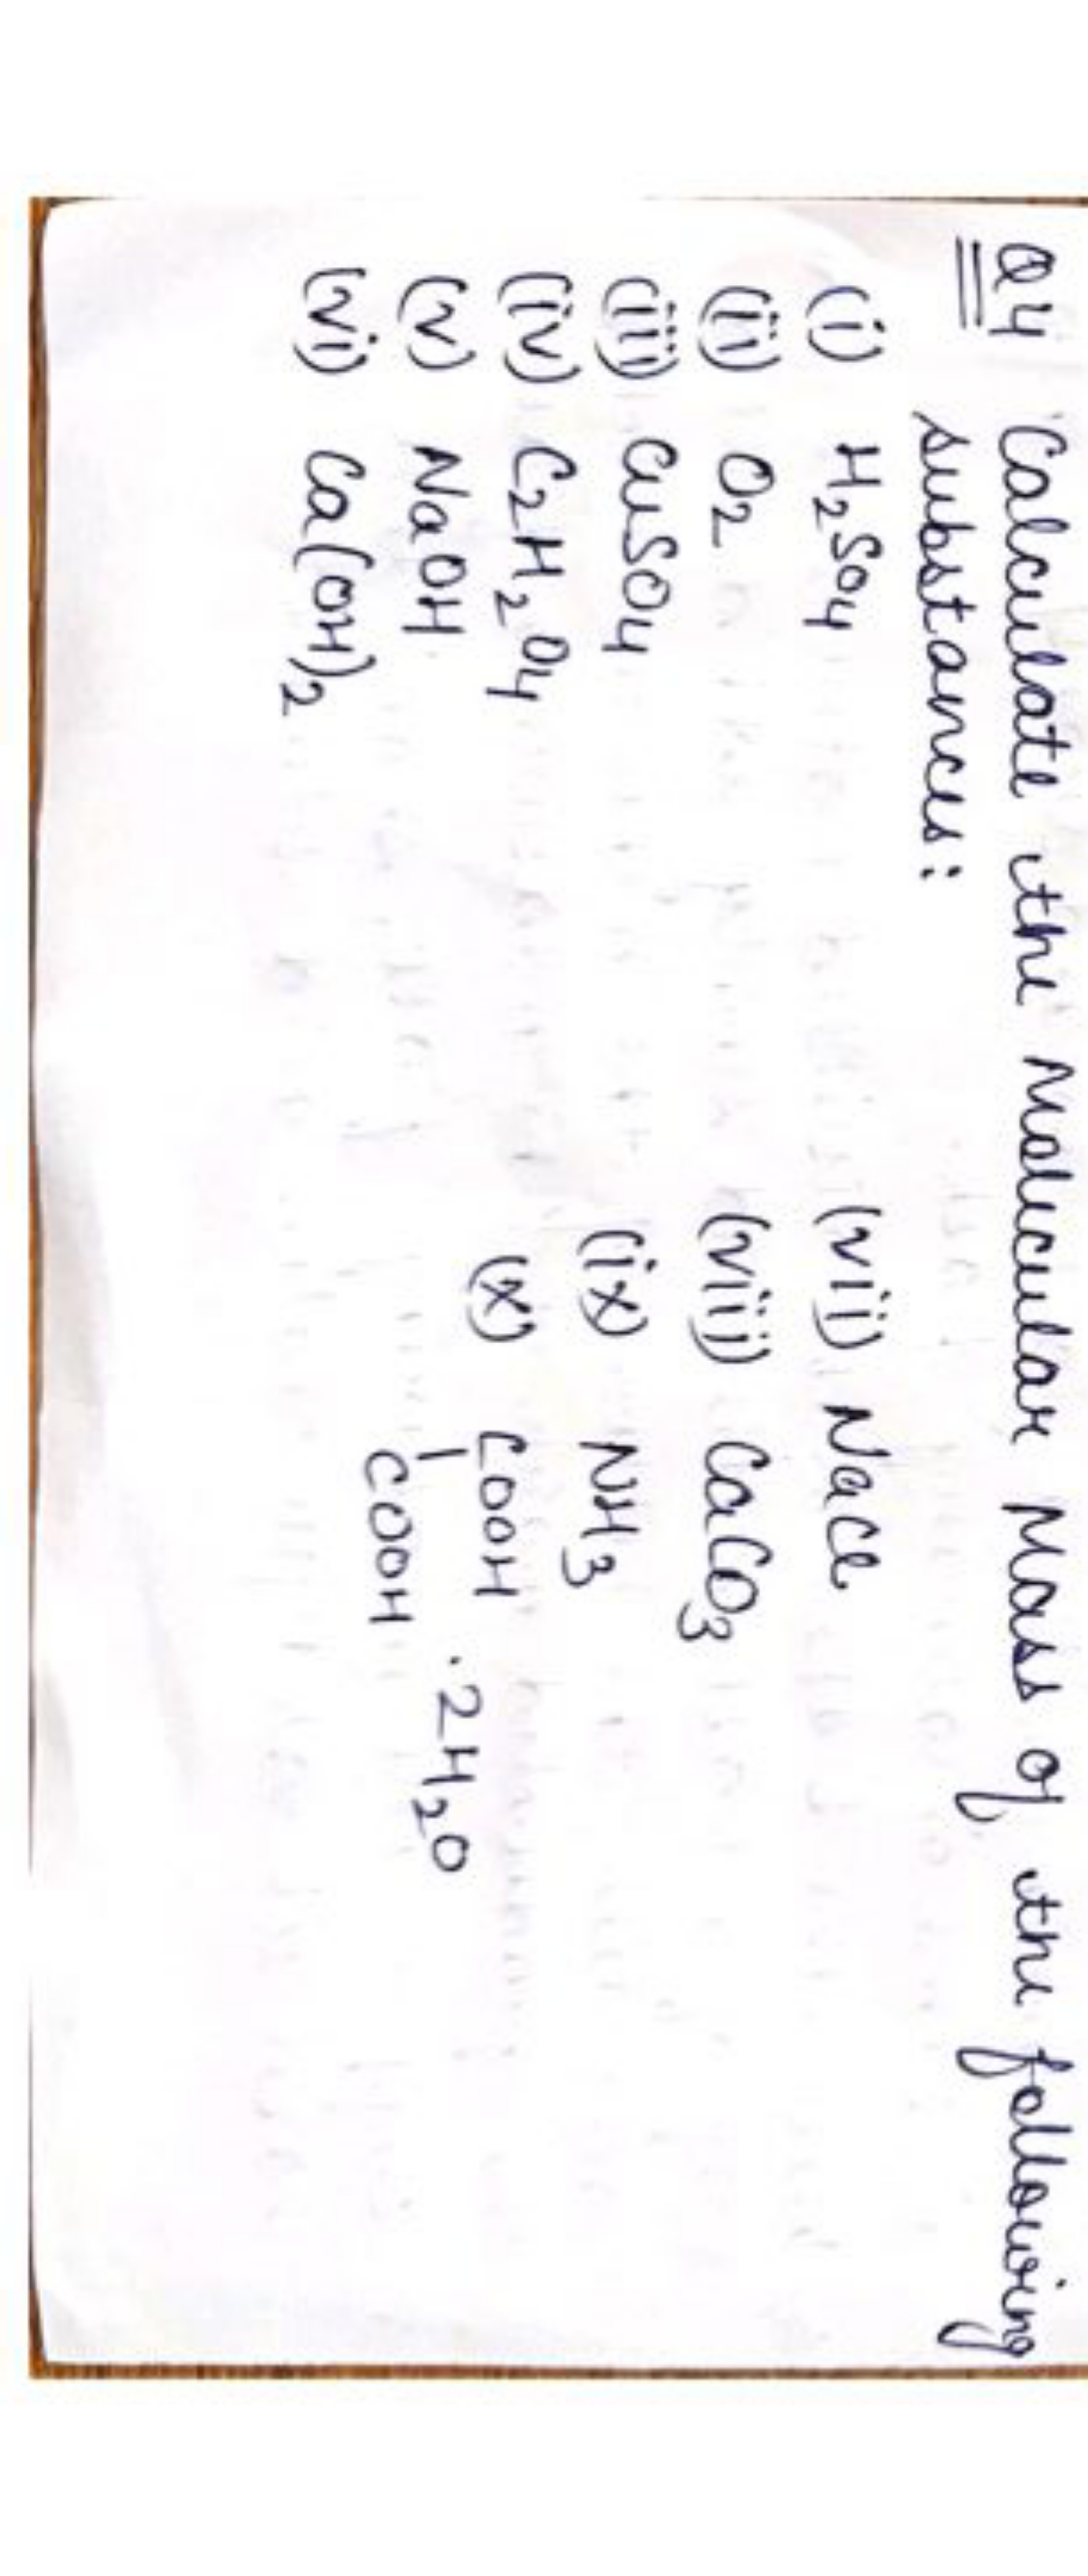 Q4 Calculate the Molecular Mass of the following
substances:
(i) H2SO4
(ii) O2
(iii) CuSO4
(iv) C2H2O4
(v) NaOH
(vi) Ca(OH)2
(vii) NaCl
(viii) CaCO3
(ix) NH3
(x) COOH
| .2H2O
COOH